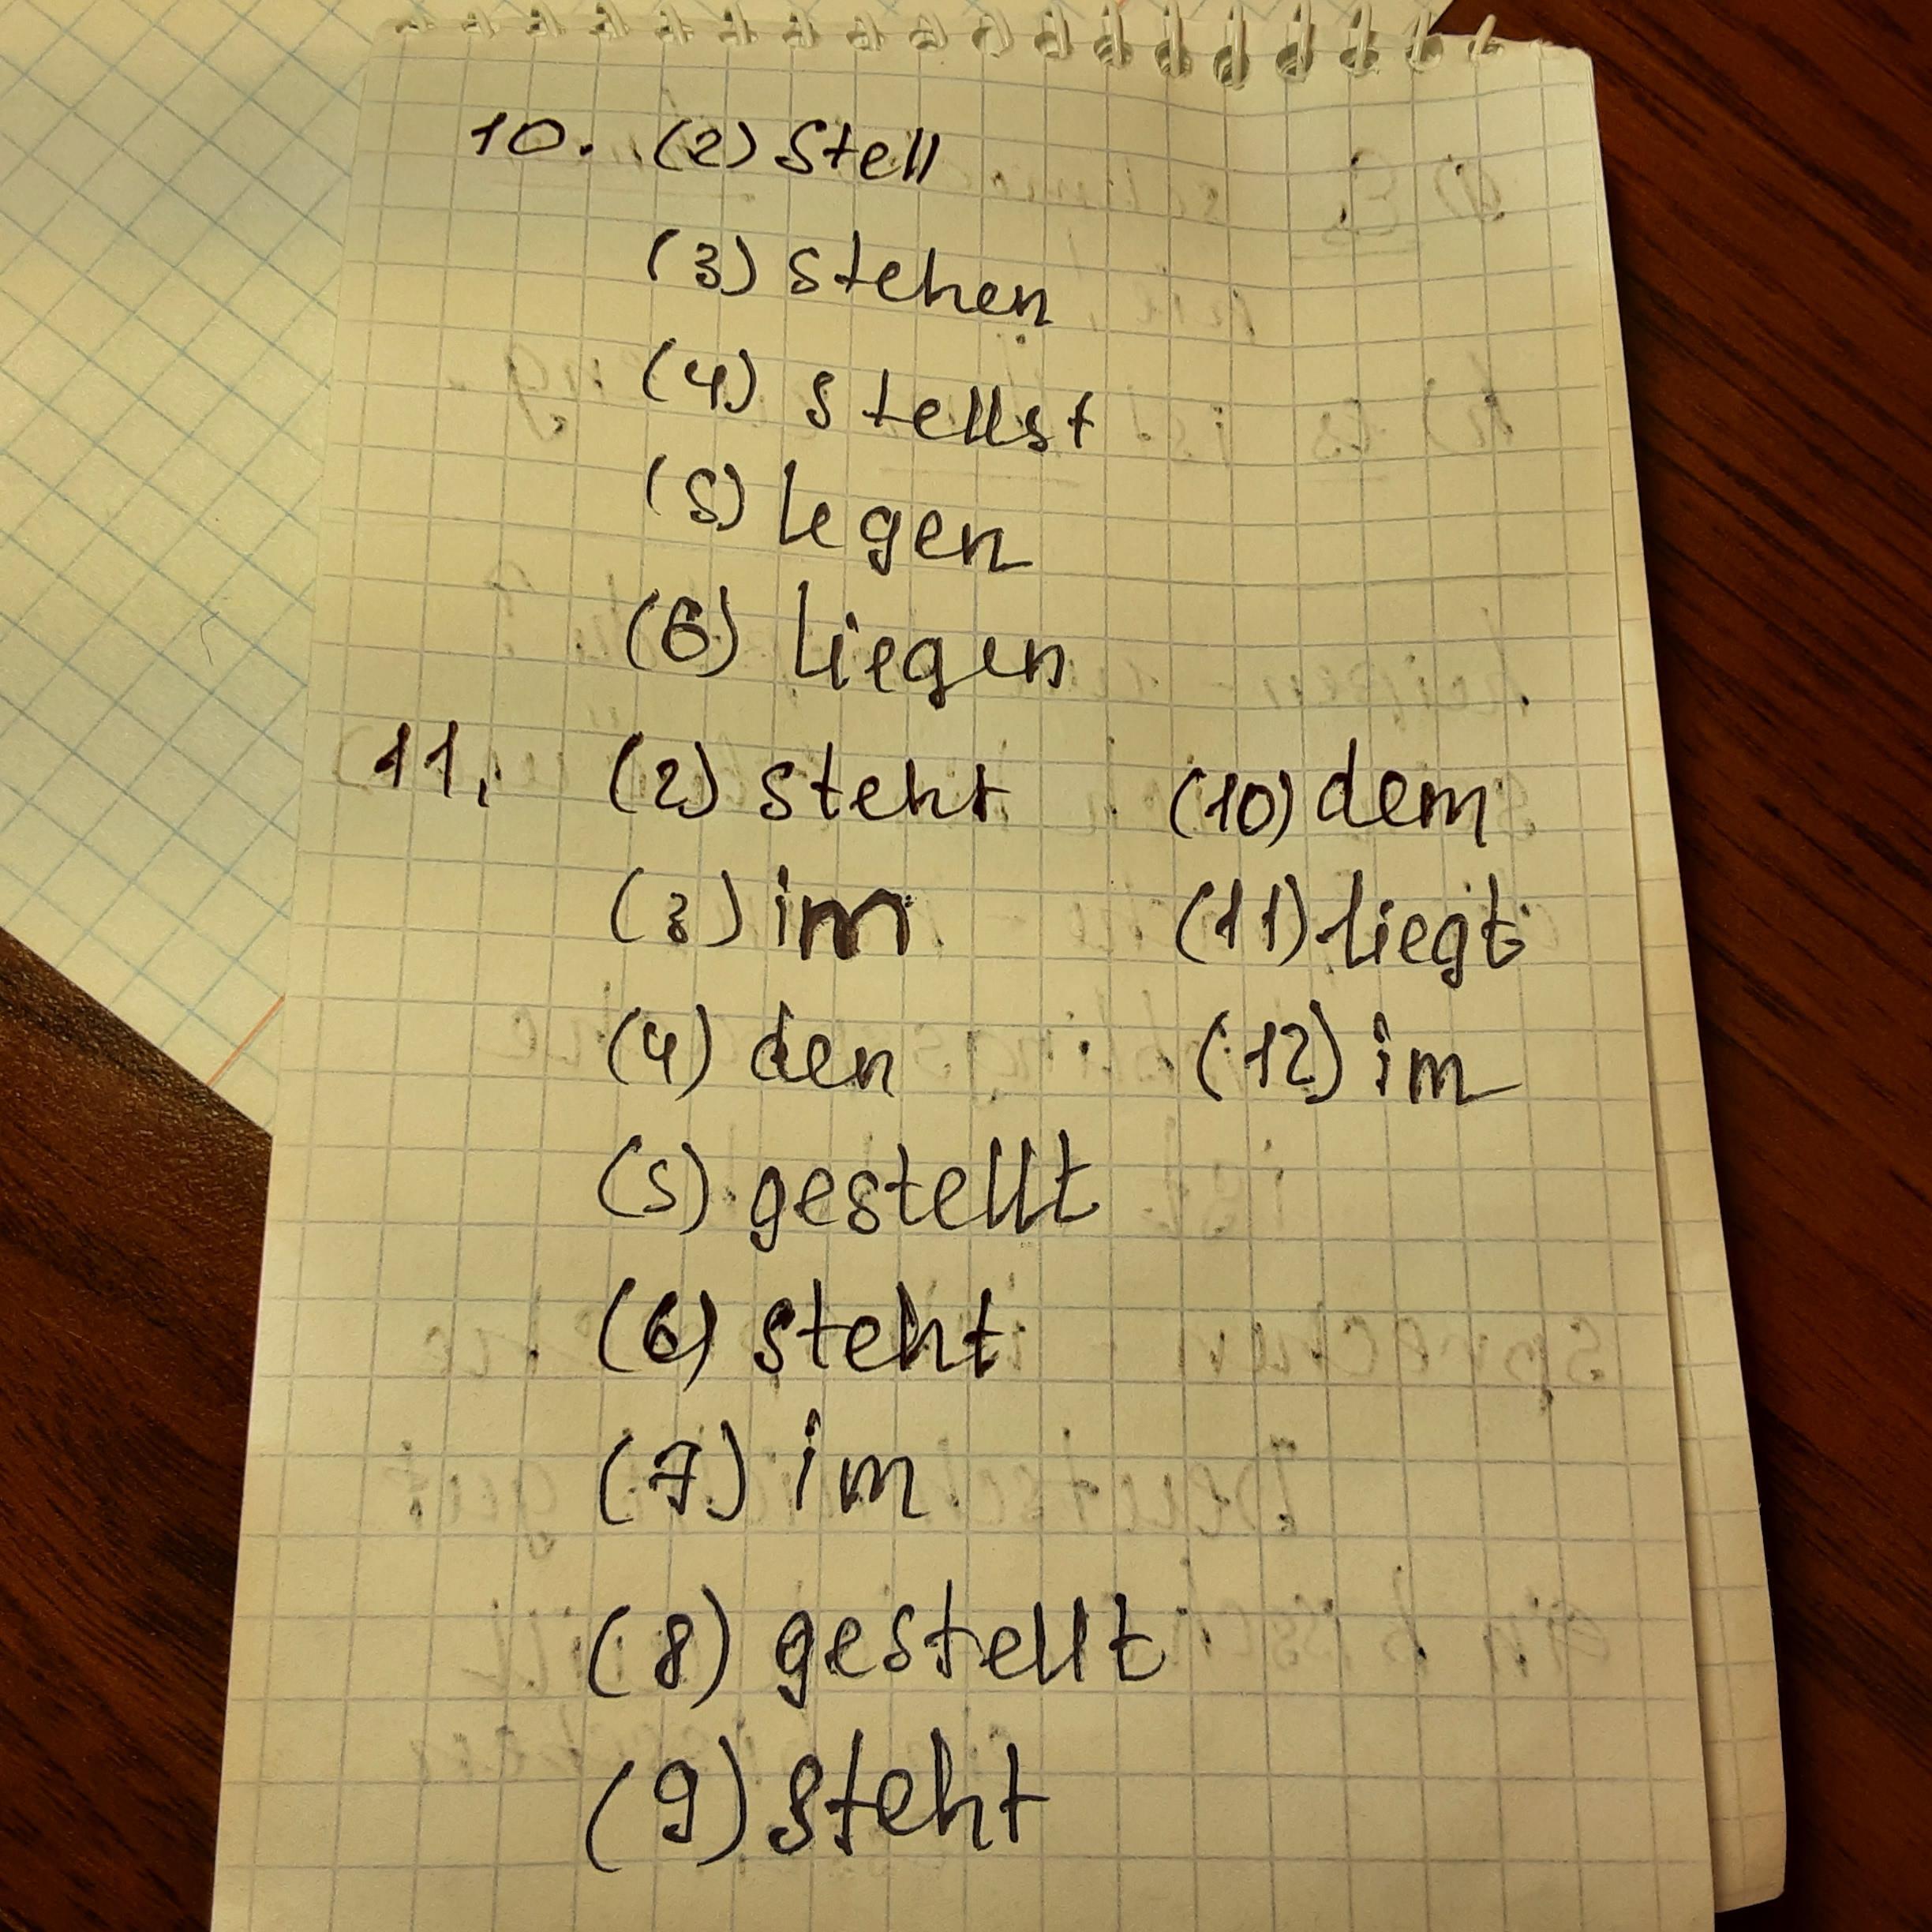 10. (2) Stell
(3) stehen
(4) stellst
(5) legen
(6) liegen
11. (2) steht
(3) im
(4) den
(5) gestellt
(6) steht
(7) im
(8) gestellt
(9) steht
(10) dem
(11) liegt
(12) im